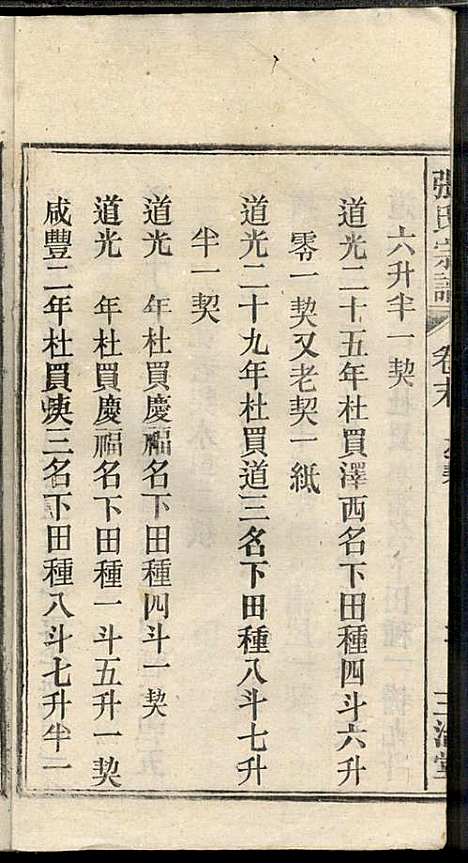 張氏宗譜
卷末
三治堂
六升半一契
道光二十五年杜買澤西名下田種四斗六升
零一契又老契一紙
道光二十九年杜買道三名下田種八斗七升
半一契
道光　年杜買慶福名下田種四斗一契
道光　年杜買慶福名下田種一斗五升一契
咸豐二年杜買庚三名下田種八斗七升半一